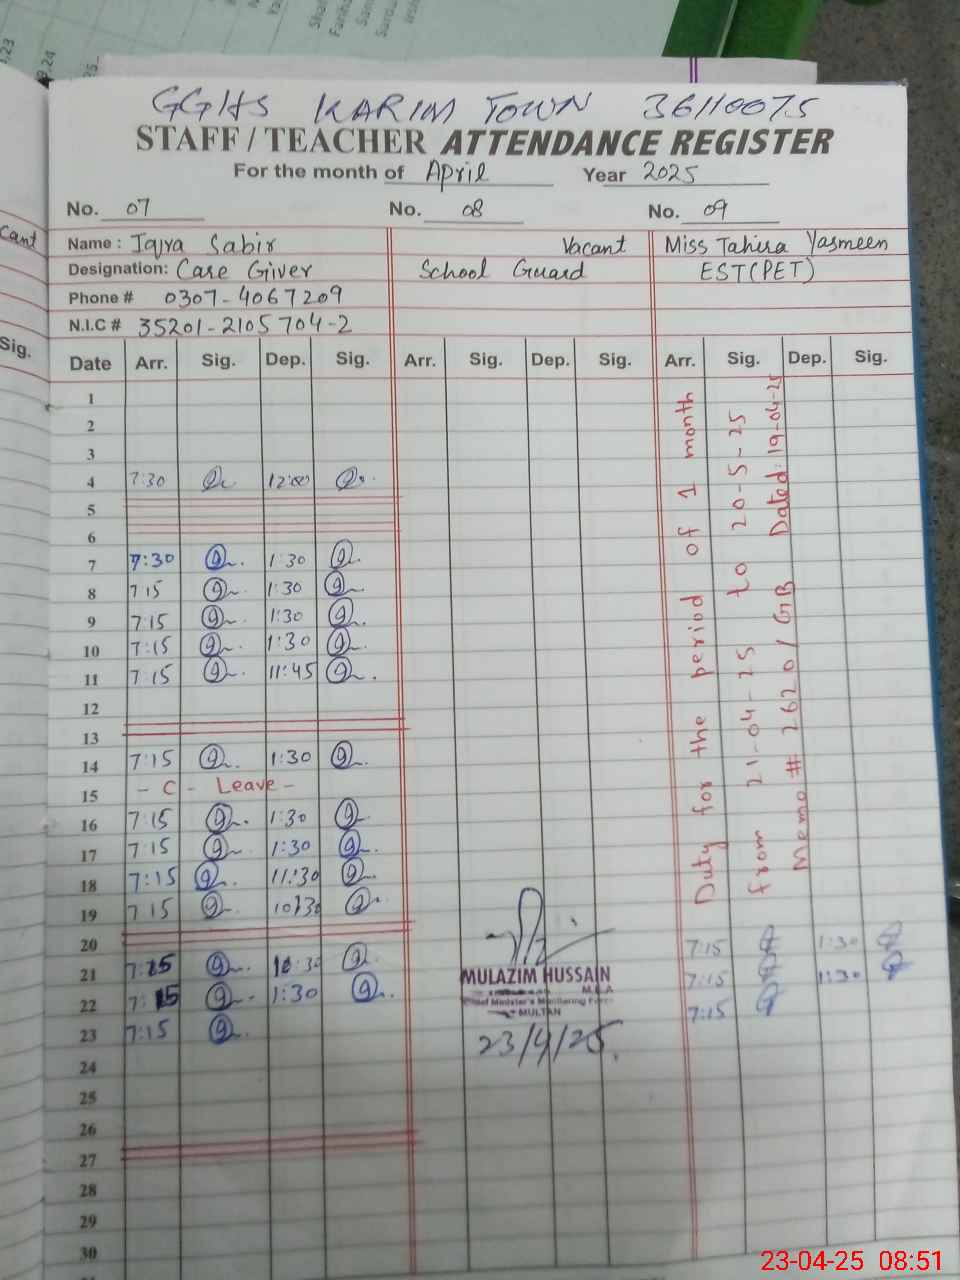 GGHS KARIM TOWN 36110075
STAFF / TEACHER ATTENDANCE REGISTER
For the month of April Year 2025
No. 07 No. 08 No. 09
Name : Iqra Sabir Vacant Miss Tahira Yasmeen
Designation: Care Giver School Guard EST(PET)
Phone # 0307-4067209
N.I.C # 35201-2105704-2
Date Arr. Sig. Dep. Sig. Arr. Sig. Dep. Sig. Arr. Sig. Dep. Sig.
1
2
3
4 7:30 12:00
5
6
7 7:30 1:30
8 7 15 1:30
9 7:15 1:30
10 7:15 1:30
11 7:15 11:45
12
13
14 7:15 1:30
15 - C - Leave -
16 7:15 1:30
17 7:15 1:30
18 7:15 11:30
19 7 15 10:30
20
21 7:15 7:15 1:30
22 7:15 1:30 7:15 1:30
23 7:15 7:15
24
25
26
27
28
29
30
Duty for the period of 1 month
from 21-04-25 to 20-5-25
Memo # 2620/GB Dated: 19-04-25
MULAZIM HUSSAIN
M.E.A
Chief Minister's Monitoring Force
MULTAN
23/4/25.
cant
Sig.
.23
9.24
23-04-25 08:51